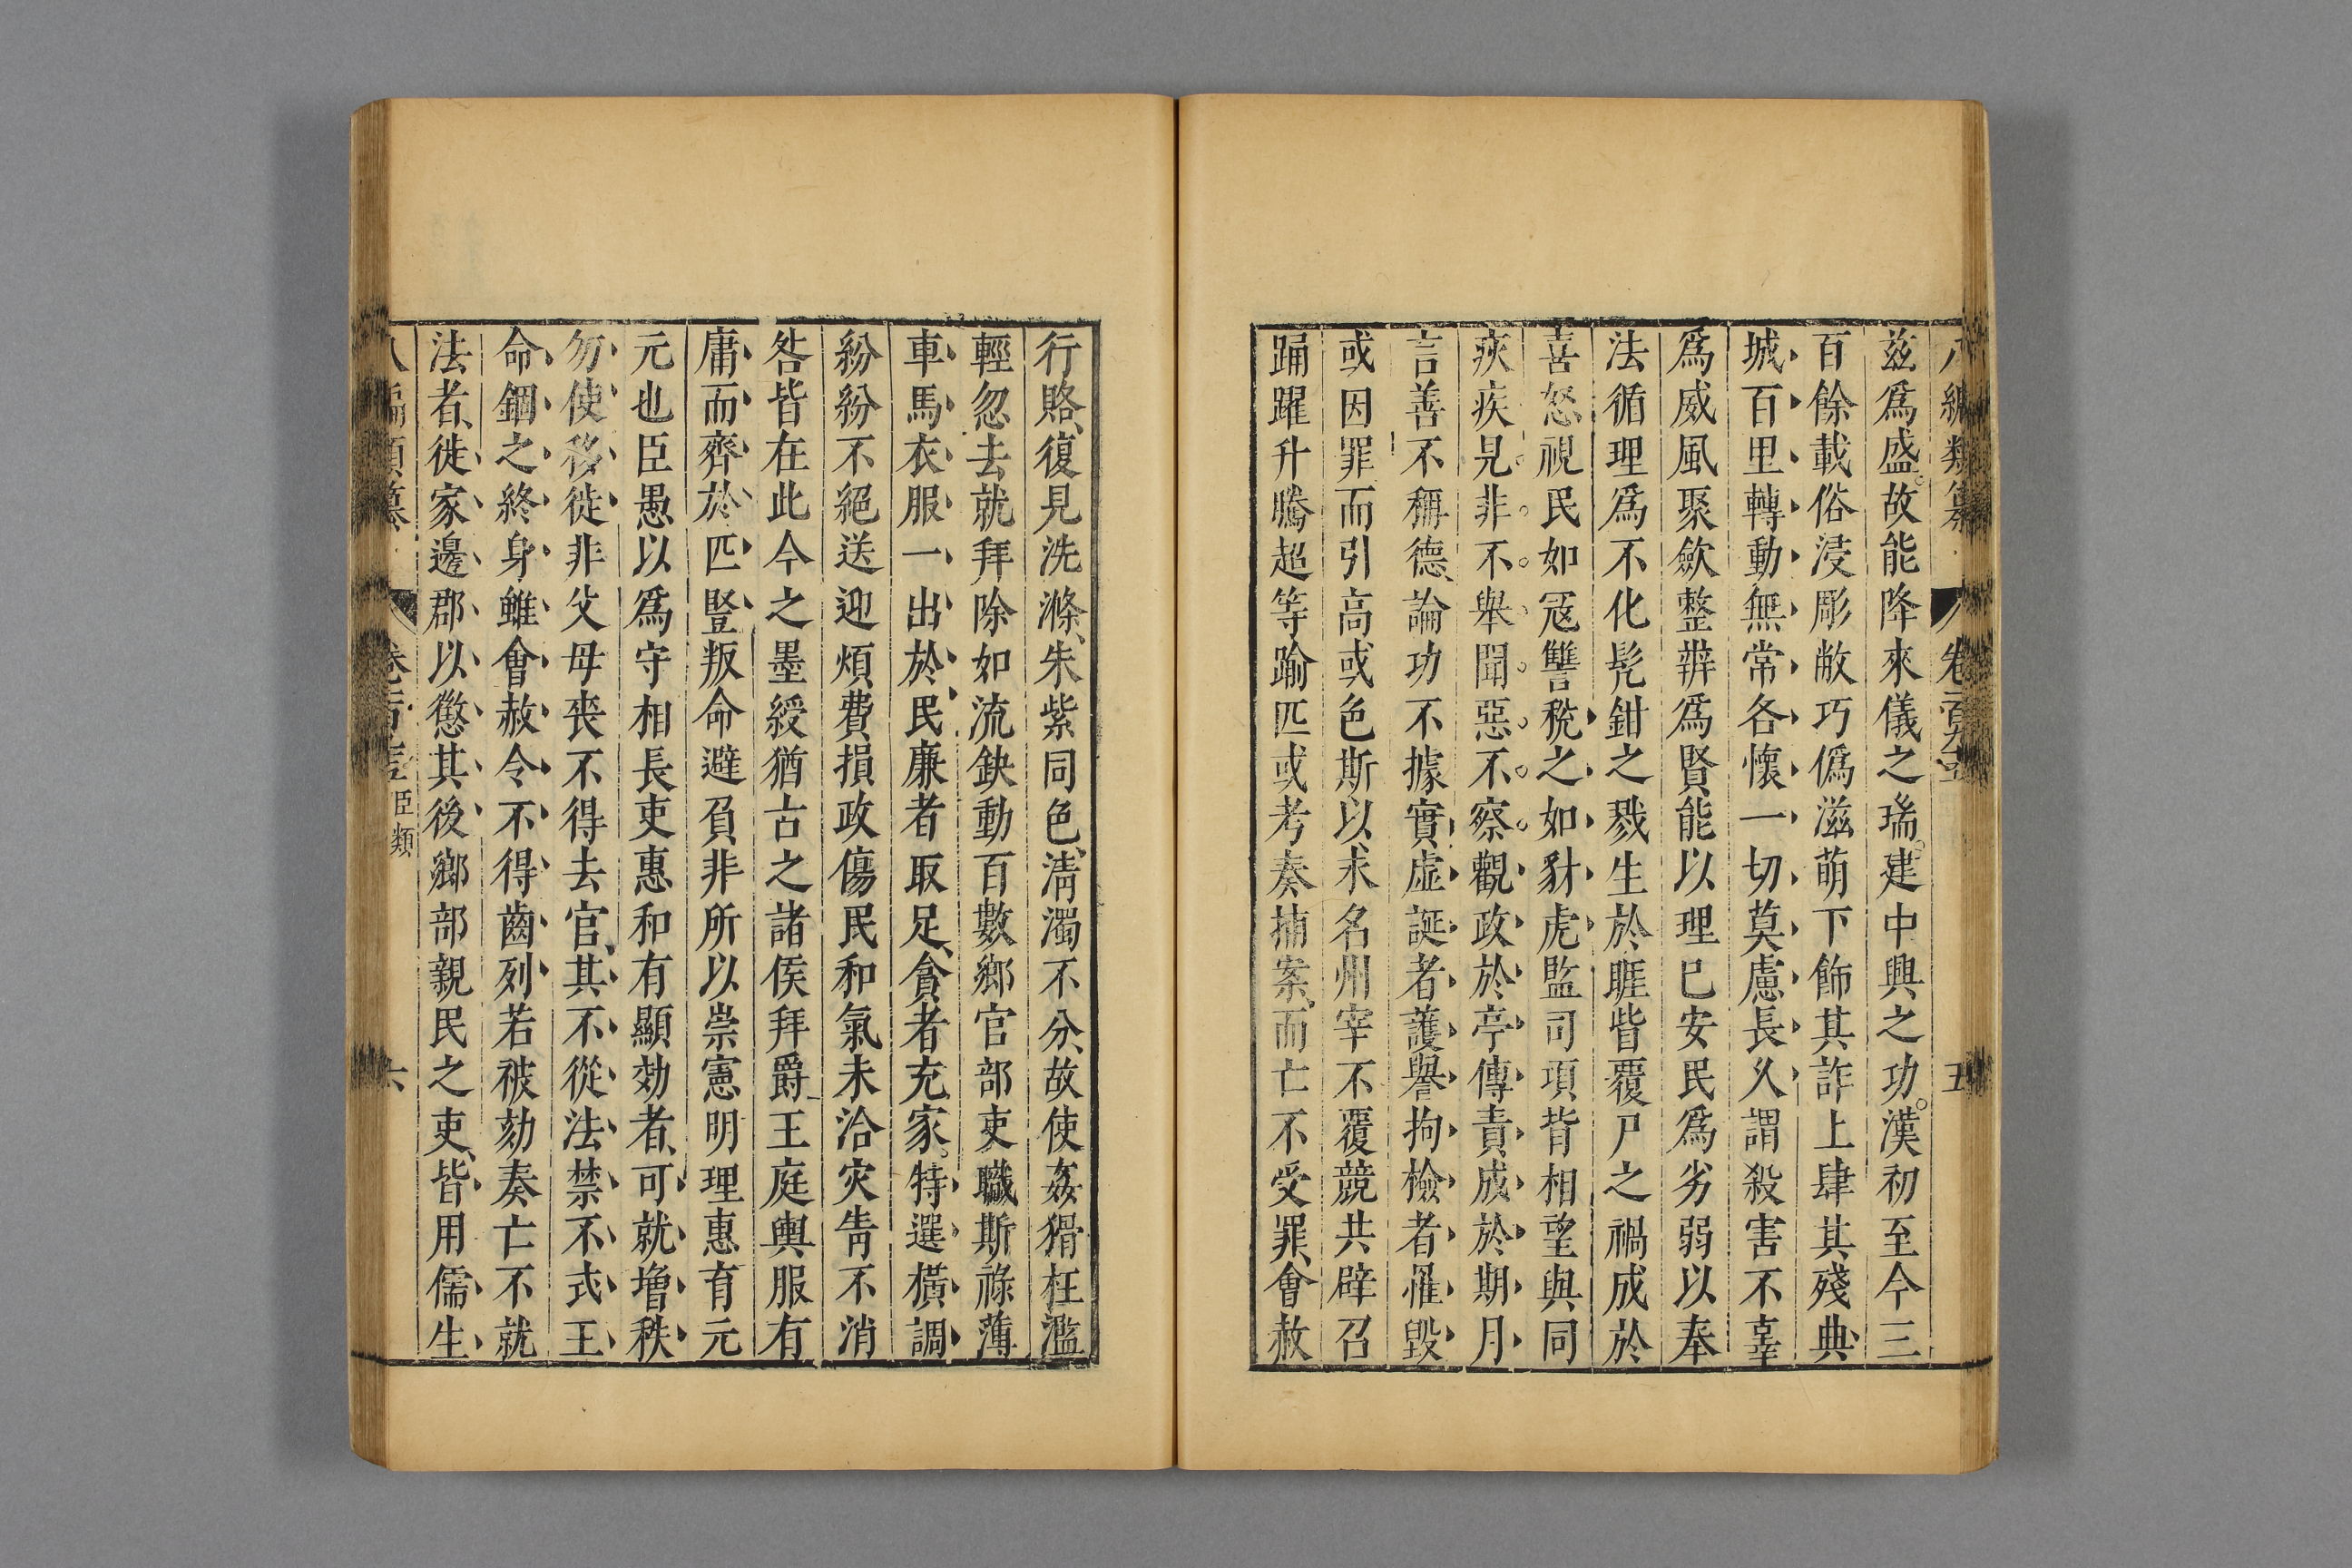 編類纂 卷 五
茲爲盛故能降來儀之瑞建中興之功漢初至今三
百餘載俗浸彫敝巧僞滋萌下飾其詐上肆其殘典
城百里轉動無常各懷一切莫慮長久謂殺害不辜
爲威風聚斂整辨爲賢能以理已安民爲劣弱以奉
法循理爲不化髡鉗之戮生於睚眥覆尸之禍成於
喜怒視民如寇讐稅之如豺虎監司項背相望與同
疾疾見非不舉聞惡不察觀政於亭傳責成於期月
言善不稱德論功不據實虛誕者護譽拘檢者罹毀
或因罪而引高或色斯以求名州宰不覆競共辟召
踊躍升騰超等踰匹或考奏捕案而亡不受罪會赦
行賂復見洗滌朱紫同色淸濁不分故使姦猾枉濫
輕忽去就拜除如流缺動百數鄉官部吏職斯祿薄
車馬衣服一出於民廉者取足貪者充家特選橫調
紛紛不絕送迎煩費損政傷民和氣未洽灾眚不消
咎皆在此今之墨綬猶古之諸侯拜爵王庭輿服有
庸而齊於匹豎叛命避負非所以崇憲明理惠育元
元也臣愚以爲守相長吏惠和有顯効者可就增秩
勿使移徙非父母喪不得去官其不從法禁不式王
命錮之終身雖會赦令不得齒列若被劾奏亡不就
法者徙家邊郡以懲其後鄉部親民之吏皆用儒生
編類纂 卷 臣類 六